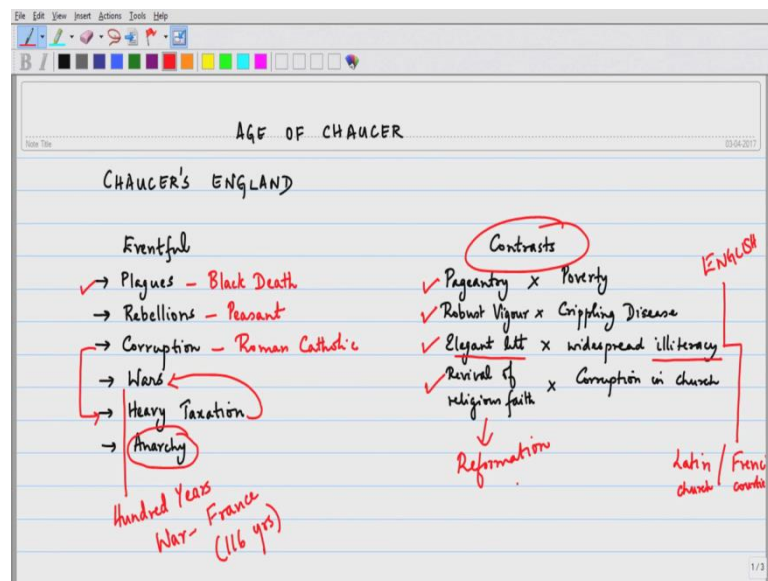 File Edit View Insert Actions Tools Help
B I
AGE OF CHAUCER
Note Title
03-04-2017
CHAUCER'S ENGLAND
Eventful
→ Plagues – Black Death
→ Rebellions – Peasant
→ Corruption – Roman Catholic
→ Wars
→ Heavy Taxation
→ Anarchy
Hundred Years
War – France
(116 yrs)
Contrasts
Pageantry x Poverty
Robust Vigour x Crippling Disease
Elegant litt x widespread illiteracy
Revival of
religious faith x Corruption in church
↓
Reformation
ENGLISH
Latin / Frenc
church
1/3